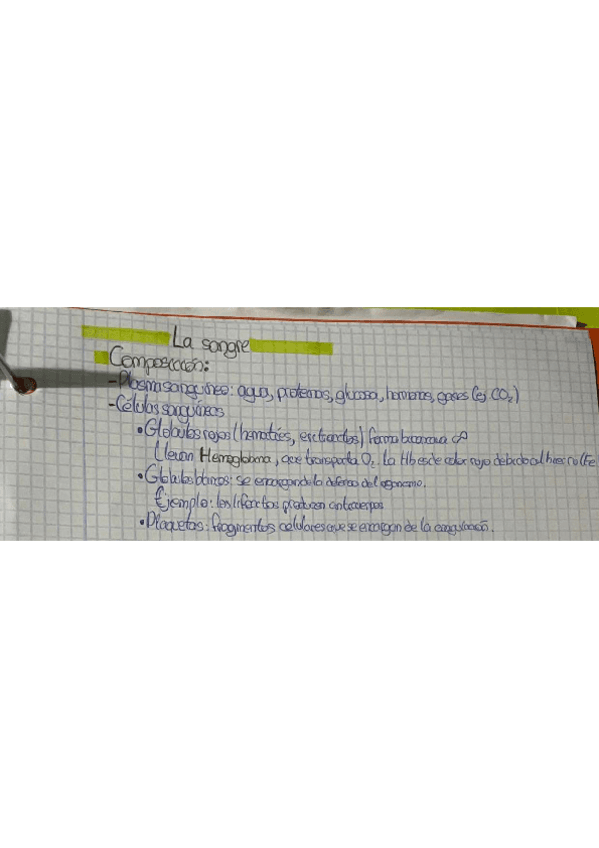 La sangre
Composición:
-Plasma sanguíneo: agua, proteínas, glucosa, hormonas, gases (ej CO₂)
-Células sanguíneas
• Glóbulos rojos (hematíes, eritrocitos) forma bicóncava ∞
Llevan Hemoglobina, que transporta O₂. La Hb es de color rojo debido al hierro (Fe
• Glóbulos blancos: se encargan de la defensa del organismo.
Ejemplo: los linfocitos producen anticuerpos
• Plaquetas: fragmentos celulares que se encargan de la coagulación.